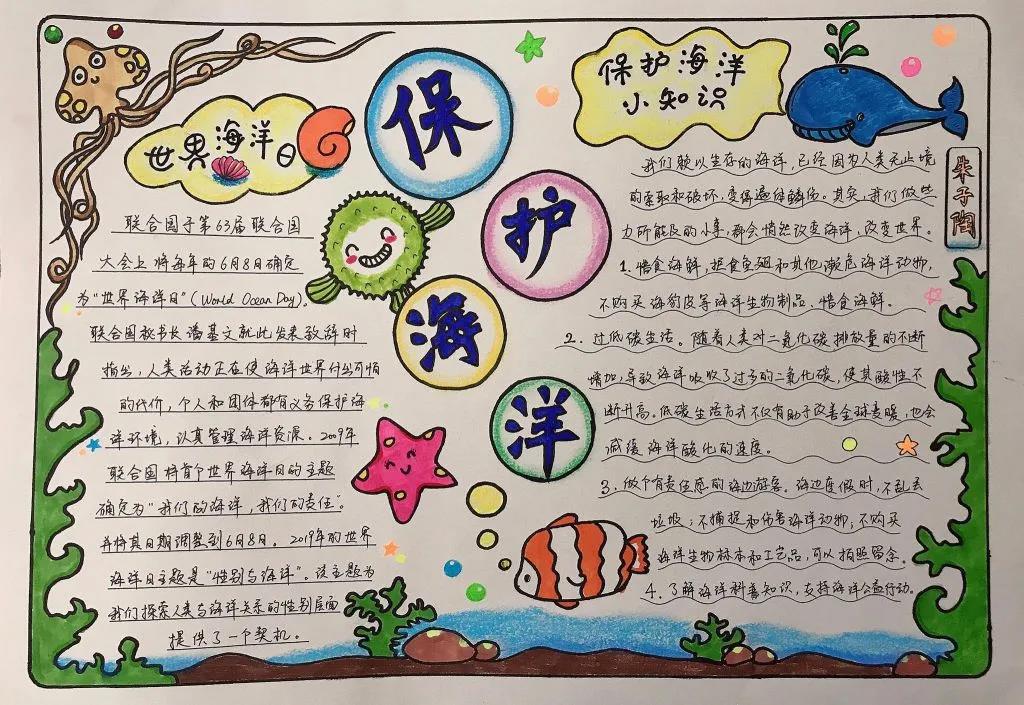 保
护
海
洋
世界海洋日
联合国于第63届联合国
大会上将每年的6月8日确定
为“世界海洋日”(World Ocean Day)。
联合国秘书长潘基文就此发表致辞时
指出,人类活动正在使海洋世界付出可怕
的代价,个人和团体都有义务保护海
洋环境,认真管理海洋资源。2009年
联合国将首个世界海洋日的主题
确定为“我们的海洋,我们的责任”。
并将其日期调整到6月8日。2019年的世界
海洋日主题是“性别与海洋”。该主题为
我们探索人类与海洋关系的性别层面
提供了一个契机。
保护海洋
小知识
我们赖以生存的海洋,已经因为人类无止境
的索取和破坏,变得遍体鳞伤。其实,我们做些
力所能及的小事,都会悄然改变海洋,改变世界。
1.惜食海鲜,拒食鱼翅和其他濒危海洋动物,
不购买海豹皮等海洋生物制品,惜食海鲜。
2.过低碳生活。随着人类对二氧化碳排放量的不断
增加,导致海洋吸收了过多的二氧化碳,使其酸性不
断升高。低碳生活方式不仅有助于改善全球变暖,也会
减缓海洋酸化的速度。
3.做个有责任感的海边游客。海边度假时,不乱丢
垃圾;不捕捉和伤害海洋动物;不购买
海洋生物标本和工艺品,可以拍照留念。
4.了解海洋科普知识,支持海洋公益行动。
朱子陶